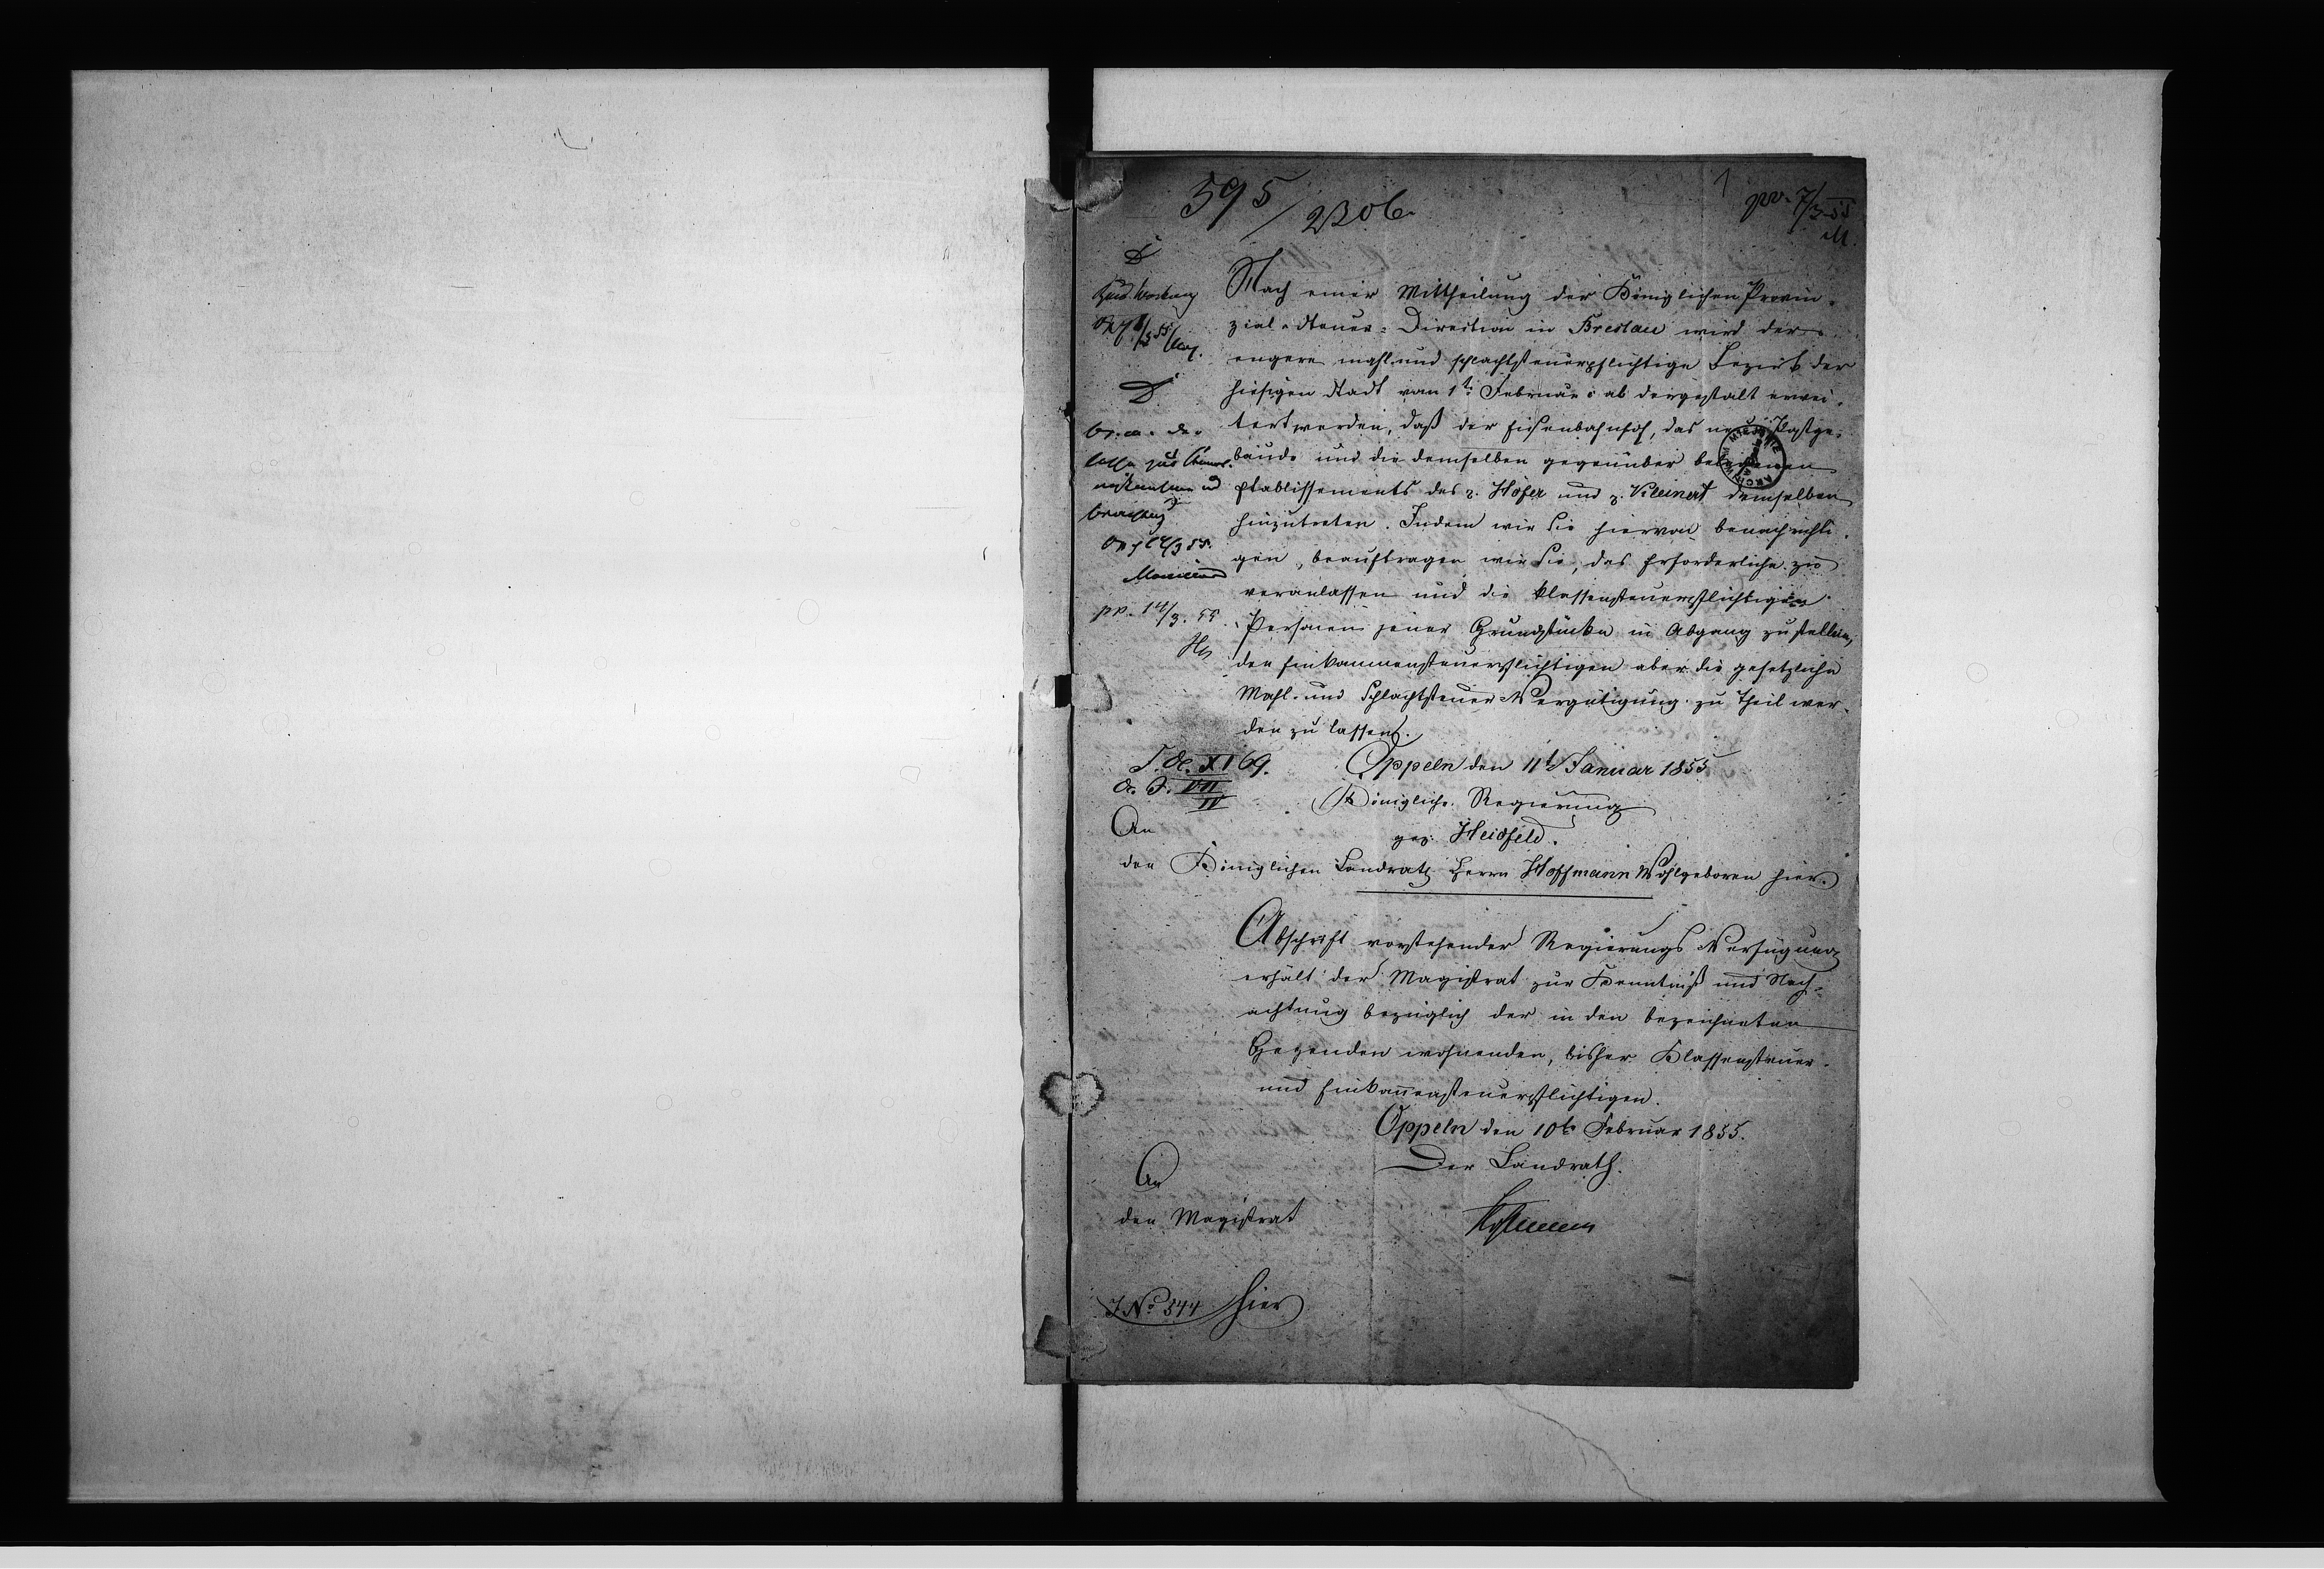 595/2306
1
pr. 7/3 55
M.
Nach einer Mittheilung der Königlichen Provin-
zial-Steuer-Direction in Breslau wird der
engere mahl- und schlachtsteuerpflichtige Bezirk der
hiesigen Stadt vom 1t Februar c ab dergestalt erwei-
tert werden, daß der Eisenbahnhof, das neue Postge-
bäude und die demselben gegenüber belegenen
Etablissements des p. Hofer und p. Kleinert demselben
hinzutreten. Indem wir Sie hiervon benachrichti-
gen, beauftragen wir Sie, das Erforderliche zu
veranlassen und die klassensteuerpflichtigen
Personen jener Grundstücke in Abgang zu stellen,
den Einkommensteuerpflichtigen aber die gesetzliche
Mahl- und Schlachtsteuer-Vergütigung zu Theil wer-
den zu lassen.
Oppeln den 11t Januar 1855
Königliche Regierung
gez. Heidfeld.
XI 69.
VII
IV
An
den Königlichen Landrath Herrn Hoffmann Wohlgeboren hier.
Abschrift vorstehender Regierungs Verfügung
erhält der Magistrat zur Kenntniß und Nach-
achtung bezüglich der in den bezeichneten
Gegenden wohnenden, bisher Klassensteuer-
und Einkom̄ensteuerpflichtigen.
Oppeln den 10t Februar 1855.
Der Landrath.
Hoffmann
An
den Magistrat
hier
J.No 544
pr. 14/3. 55.